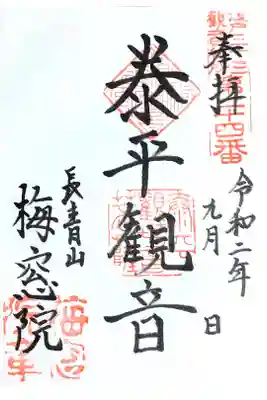 奉拝
令和二年
九月 日
泰平観音
長青山
梅窓院